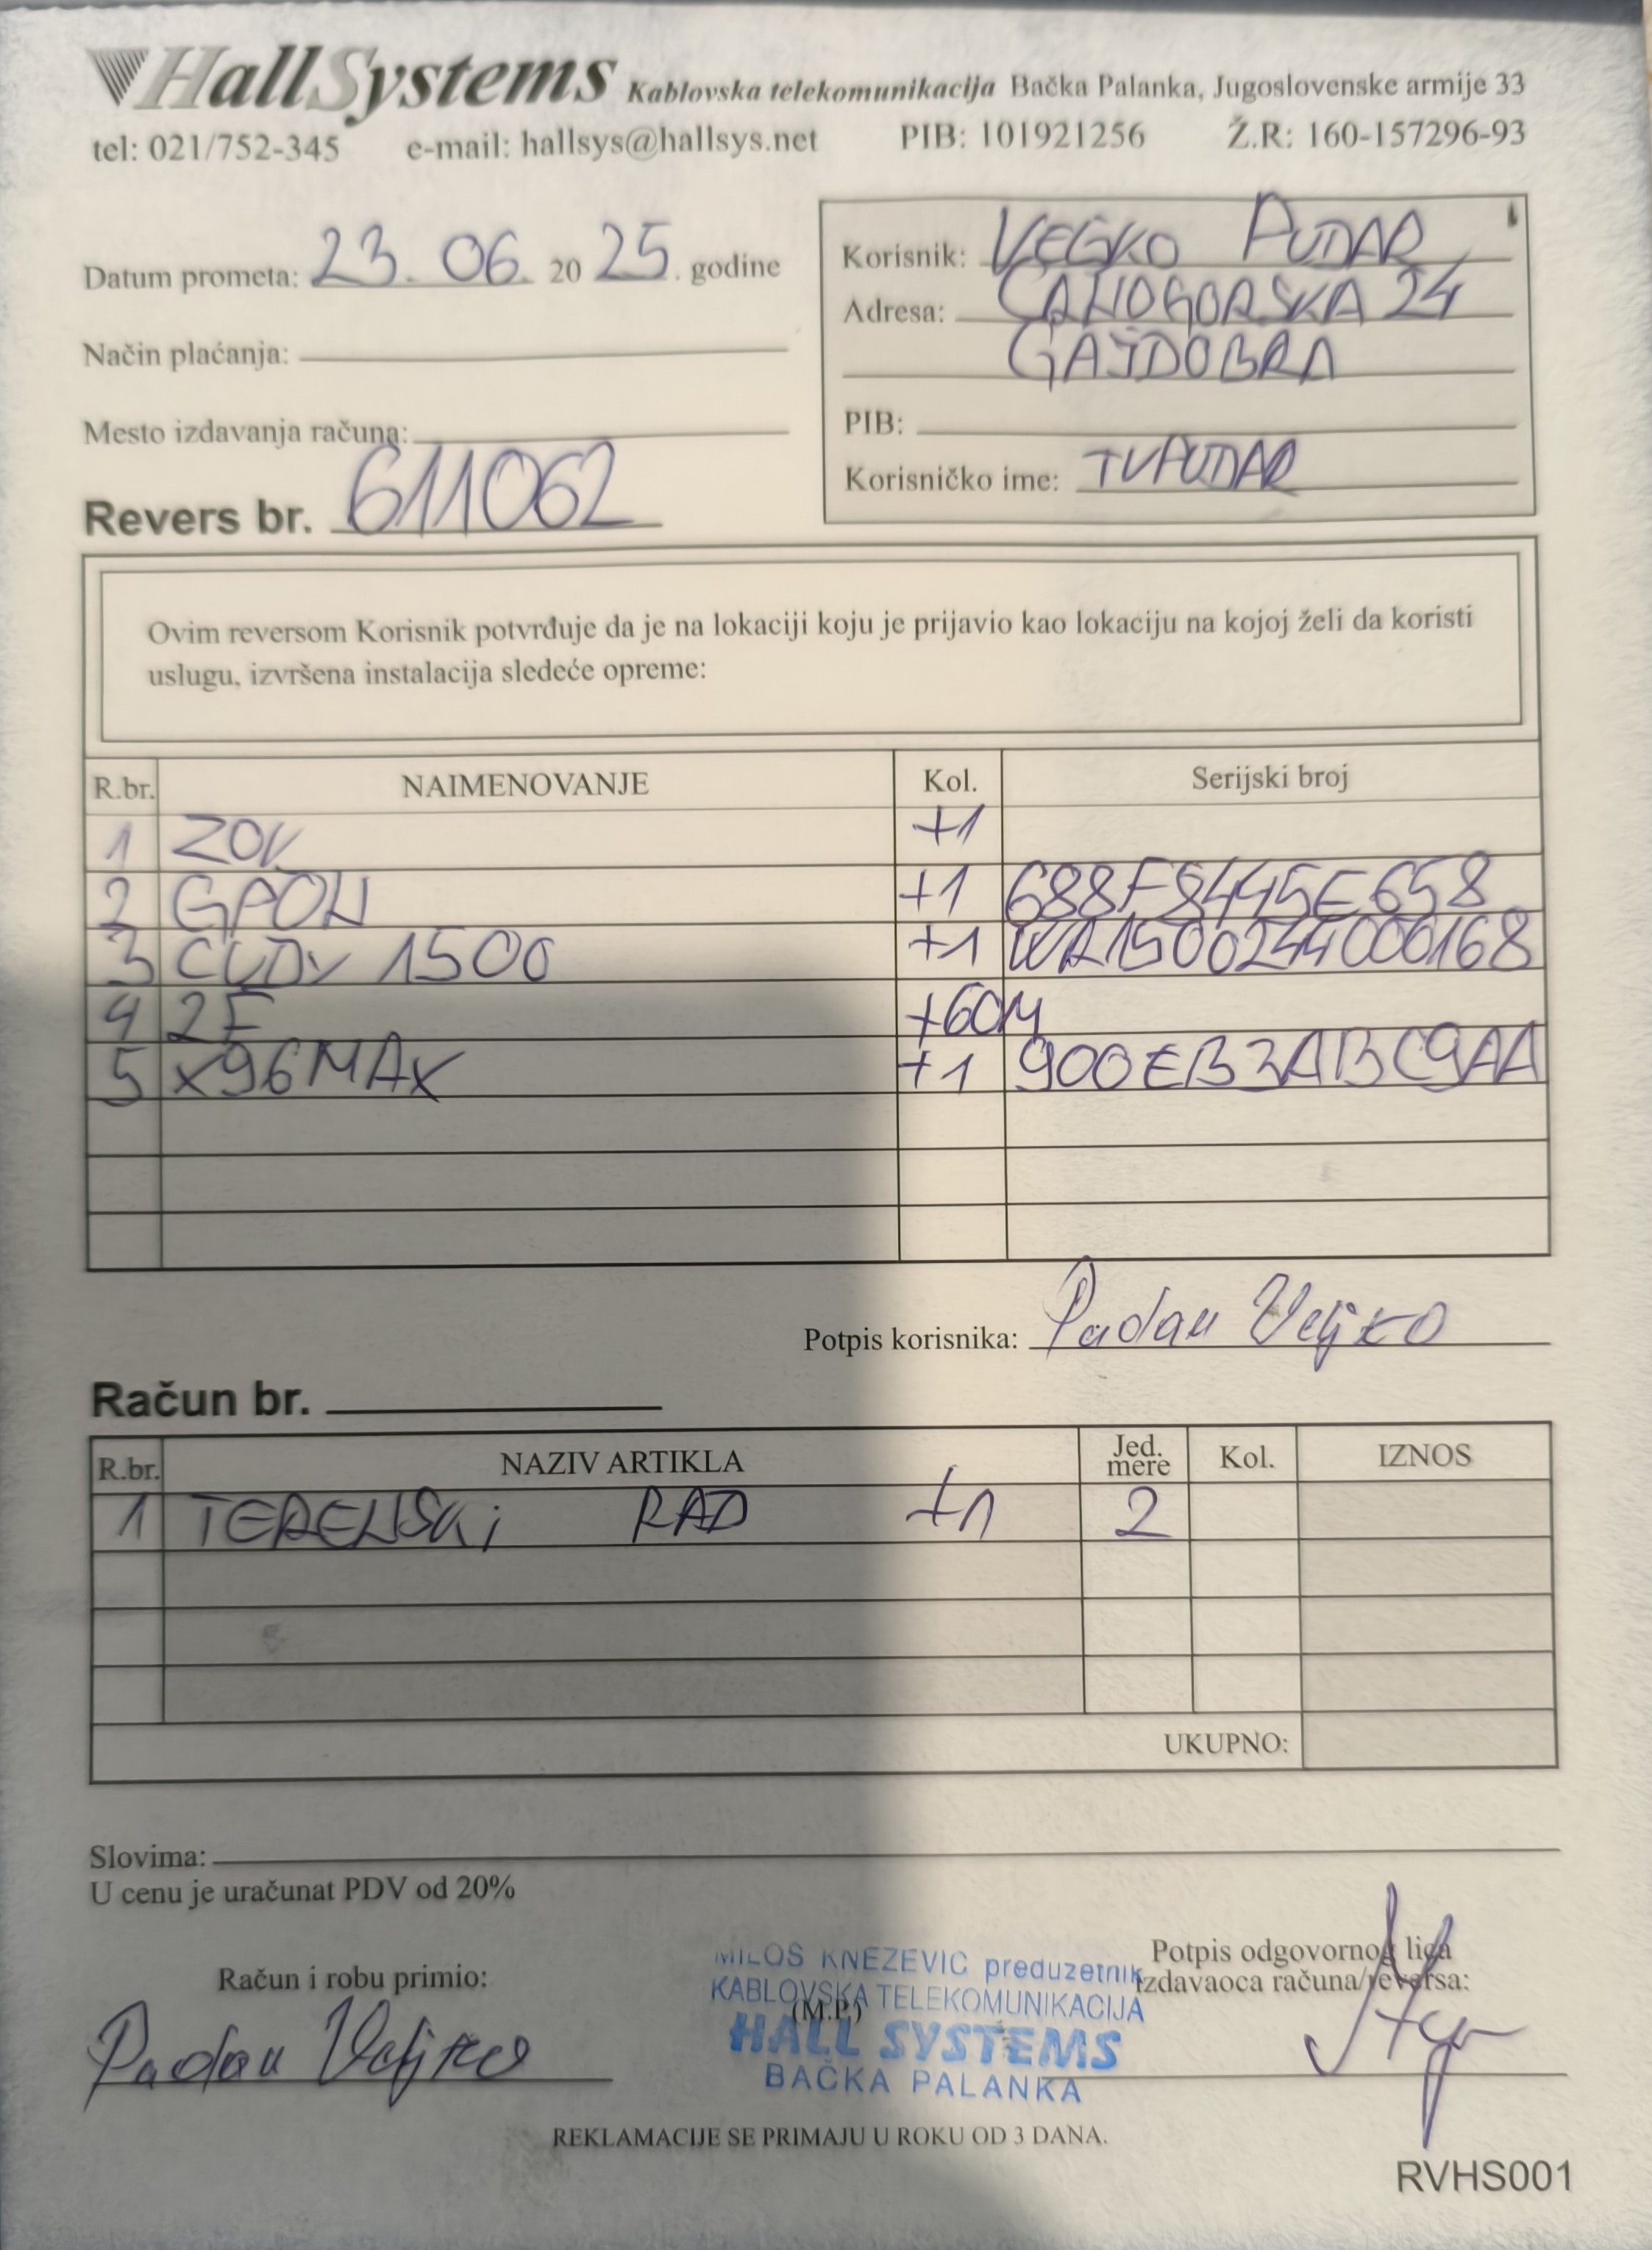 HallSystems Kablovska telekomunikacija Bačka Palanka, Jugoslovenske armije 33
tel: 021/752-345 e-mail: hallsys@hallsys.net PIB: 101921256 Ž.R: 160-157296-93
Datum prometa: 23. 06. 20 25. godine
Način plaćanja:
Mesto izdavanja računa:
Revers br. 611062
Korisnik: PUDAR
Adresa: 24
GAJDOBRA
PIB:
Korisničko ime: TVPUDAR
Ovim reversom Korisnik potvrđuje da je na lokaciji koju je prijavio kao lokaciju na kojoj želi da koristi
uslugu, izvršena instalacija sledeće opreme:
R.br. NAIMENOVANJE Kol. Serijski broj
1 ZOV +1
2 GPON +1 688F8445E658
3 CUDY 1500 +1 WR1500244000168
4 2F +60M
5 X96MAX +1 900EB3ABC9AA
Potpis korisnika: Veljko
Račun br.
R.br. NAZIV ARTIKLA Jed. mere Kol. IZNOS
1 TERENSKi RAD +1 2
UKUPNO:
Slovima:
U cenu je uračunat PDV od 20%
Račun i robu primio:
Veljko
MILOS KNEZEVIC preduzetnik
KABLOVSKA TELEKOMUNIKACIJA
(M.P.)
HALL SYSTEMS
BAČKA PALANKA
Potpis odgovornog lica
izdavaoca računa/reversa:
REKLAMACIJE SE PRIMAJU U ROKU OD 3 DANA.
RVHS001